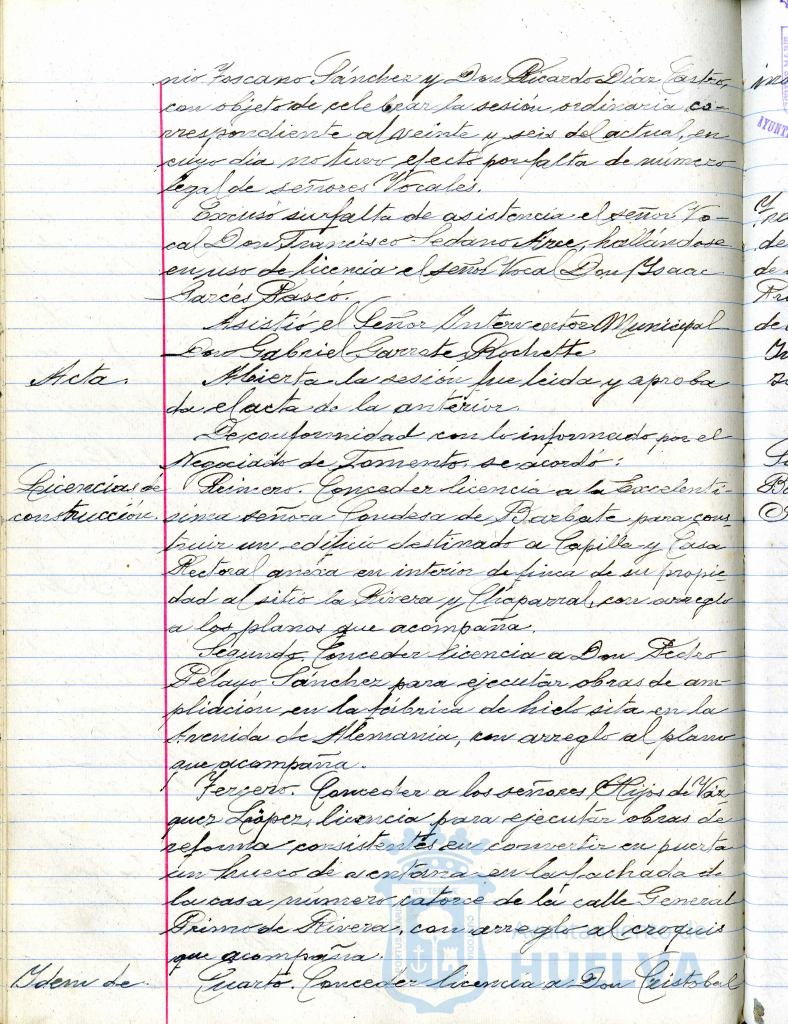 nio Toscano Sánchez y Don Ricardo Díaz Castro,
con objeto de celebrar la sesión ordinaria co-
rrespondiente al veinte y seis del actual, en
cuyo dia no tuvo efecto por falta de numero
legal de señores Vocales.
Excusó su falta de asistencia el señor Vo-
cal Don Francisco Sedano Arce, hallándose
en uso de licencia el señor Vocal Don Isaac
Garcés Pascó.
Asistió el Señor Interventor Municipal
Don Gabriel Garrote Rochette
Acta. Abierta la sesión fue leida y aproba
da el acta de la anterior.
De conformidad con lo informado por el
Negociado de Fomento, se acordó:
Licencias de Primero. Conceder licencia a la Excelenti-
construcción. sima señora Condesa de Barbate para cons-
truir un edificio destinado a Capilla y Casa
Rectoral anexa en interior de finca de su propie-
dad al sitio la Rivera y Chaparral, con arreglo
a los planos que acompaña.
Segundo. Conceder licencia a Don Pedro
Pelayo Sánchez para ejecutar obras de am-
pliación en la fábrica de hielo sita en la
Avenida de Alemania, con arreglo al plano
que acompaña.
Tercero. Conceder a los señores Hijos de Váz-
quez López, licencia para ejecutar obras de
reforma consistentes en convertir en puerta
un hueco de ventana en la fachada de
la casa número catorce de la calle General
Primo de Rivera, con arreglo al croquis
que acompaña.
Idem de Cuarto. Conceder licencia a Don Cristobal
Ayuntamiento de
HUELVA